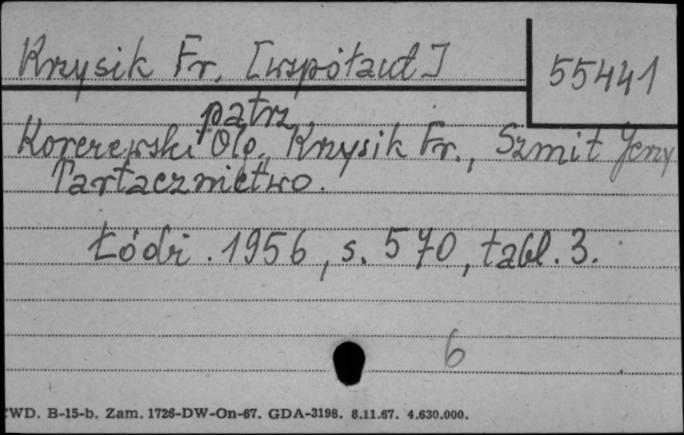 Krzysik Fr. [współaut]
55441
patrz
Korczewski Olg., Krzysik Fr., Szmit Jerzy
Tartacznictwo.
Łódź. 1956, s. 570, tabl. 3.
6
WD. B-15-b. Zam. 1726-DW-On-67. GDA-3198. 8.11.67. 4.630.000.